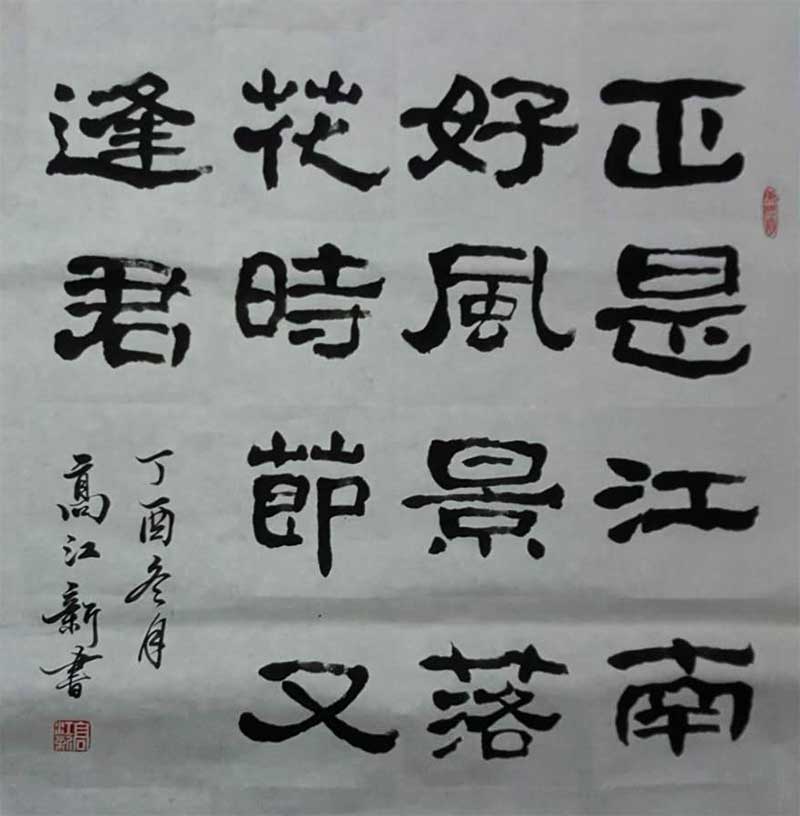 正是江南
好風景落
花時節又
逢君
丁酉冬月
高江新書